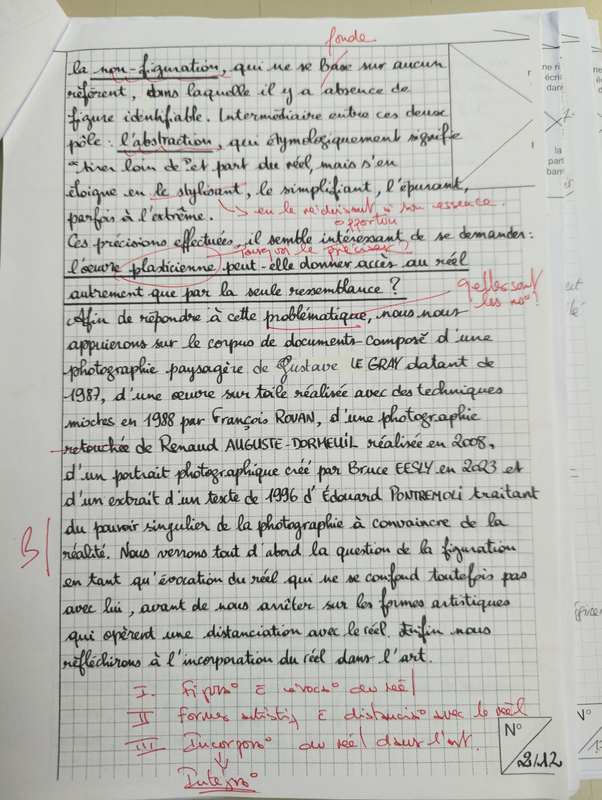 fonde
la non-figuration, qui ne se base sur aucun
référent, dans laquelle il y a absence de
figure identifiable. Intermédiaire entre ces deux
pôle : l'abstraction, qui étymologiquement signifie
"tirer loin de" et part du réel, mais s'en
éloigne en le stylisant, le simplifiant, l'épurant,
parfois à l'extrême.
en le réduisant à son essence.
opportun
Ces précisions effectuées, il semble intéressant de se demander :
Pourquoi le préciser ?
l'œuvre plasticienne peut-elle donner accès au réel
autrement que par la seule ressemblance ?
les
Afin de répondre à cette problématique, nous nous
appuierons sur le corpus de documents composé d'une
photographie paysagère de Gustave LE GRAY datant de
1987, d'une œuvre sur toile réalisée avec des techniques
mixtes en 1988 par François ROUAN, d'une photographie
retouchée de Renaud AUGUSTE-DORMEUIL réalisée en 2008,
d'un portrait photographique créé par Bruce EESLY en 2023 et
d'un extrait d'un texte de 1996 d'Édouard PONTREMOLI traitant
du pouvoir singulier de la photographie à convaincre de la
réalité. Nous verrons tout d'abord la question de la figuration
B
en tant qu'évocation du réel qui ne se confond toutefois pas
avec lui, avant de nous arrêter sur les formes artistiques
qui opèrent une distanciation avec le réel. Enfin nous
réfléchirons à l'incorporation du réel dans l'art.
I. du réel
II formes avec le réel
III Incorpor° du réel dans l'art.
Intégr°
N°
2/12
N°